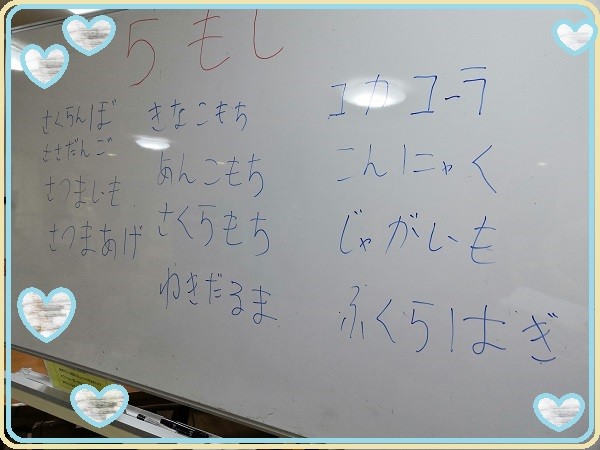 5もし
さくらんぼ
ささだんご
さつまいも
さつまあげ
きなこもち
あんこもち
さくらもち
ゆきだるま
コカコーラ
こんにゃく
じゃがいも
ふくらはぎ